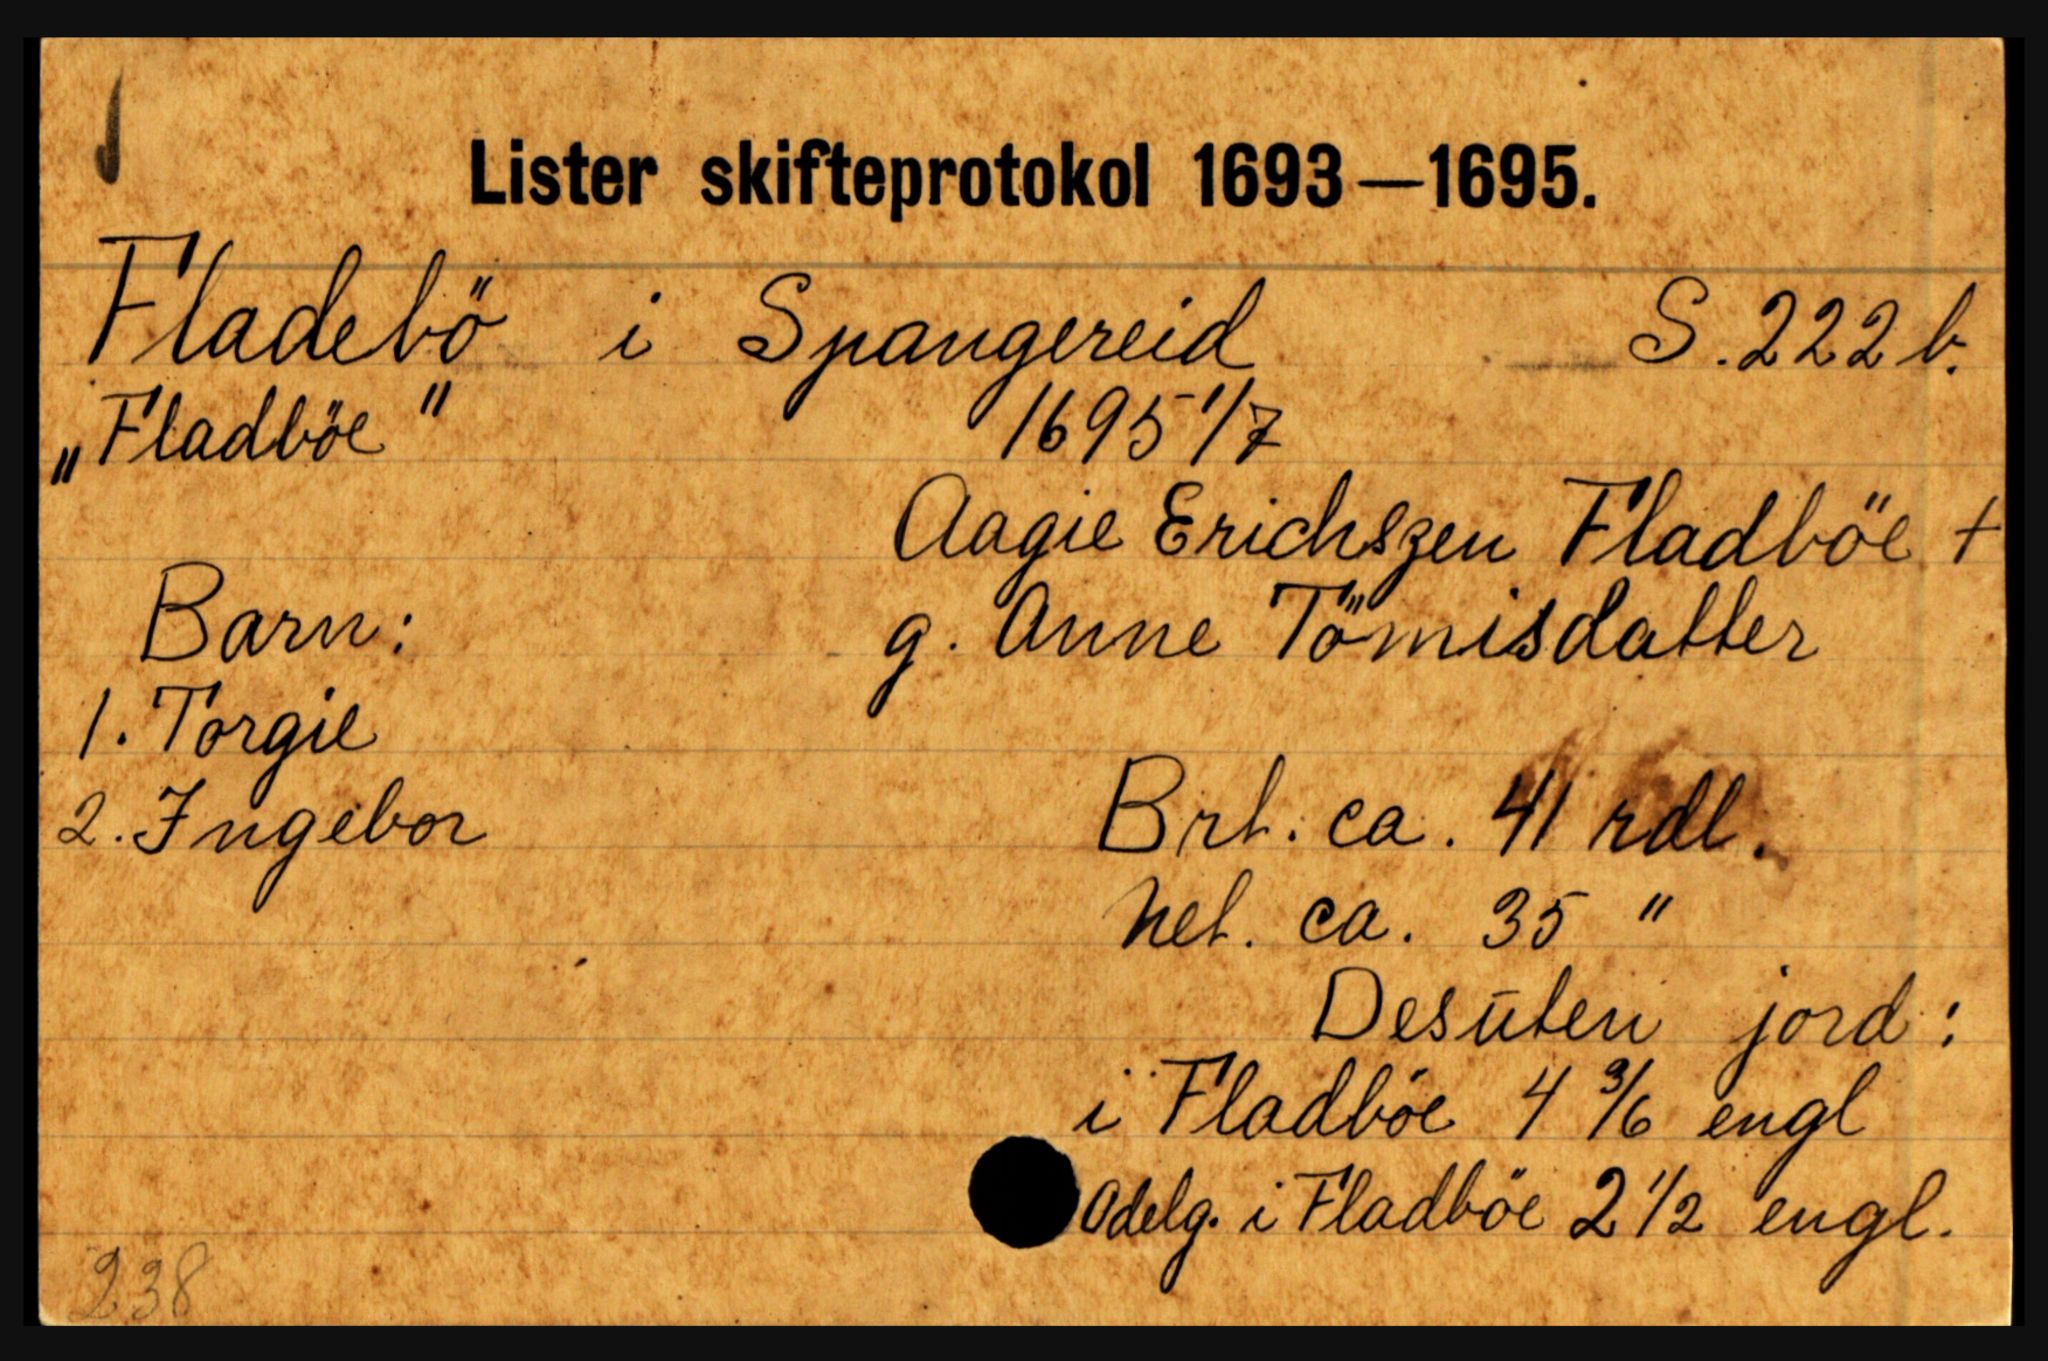 Lister skifteprotokol 1693—1695.
Fladebö i Spangereid S. 222 b.
„Fladböe" 1695 1/7
Aagie Erichszen Fladböe +
Barn: g. Anne Tömisdatter
1. Torgie
2. Ingebor Brt. ca. 41 rdl.
Net. ca. 35 "
Desuten jord:
i Fladböe 4 3/6 engl
Odelg. i Fladböe 2 1/2 engl.
238